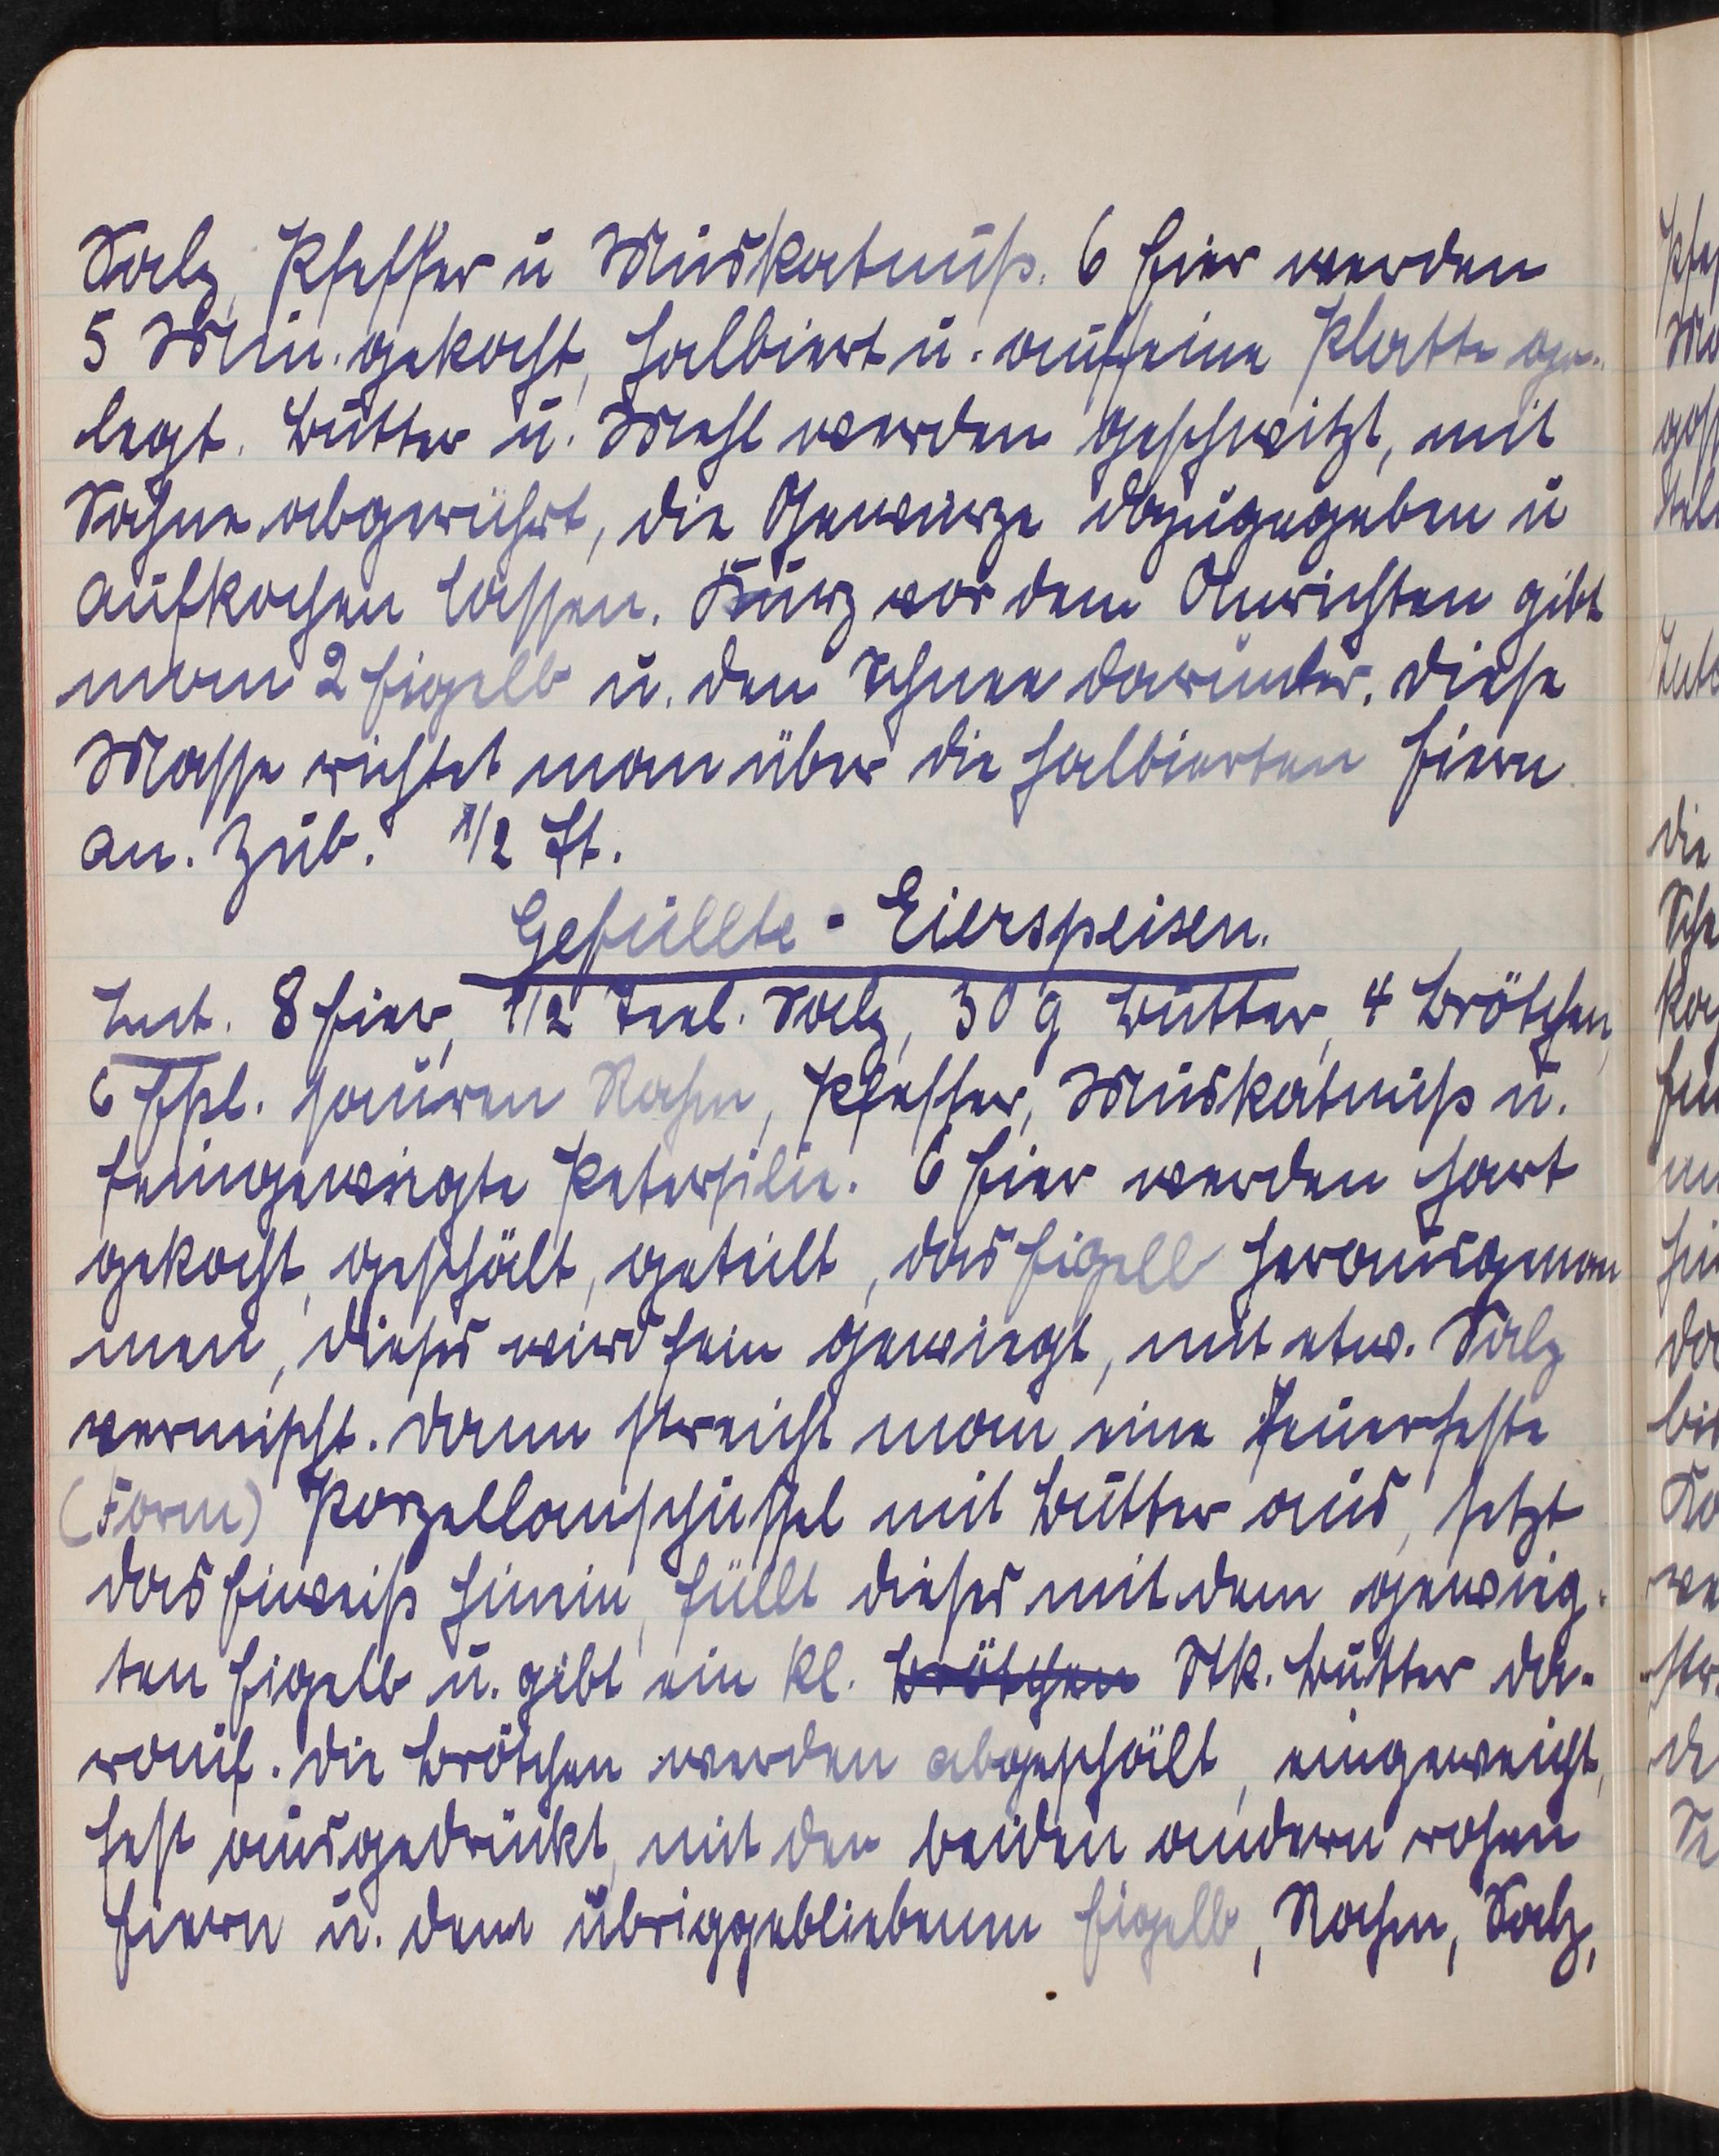 Salz, Pfeffer u Muskatnuß. 6 Eier werden
5 Min. gekocht, halbiert u. auf eine Platte ge-
legt. Butter u. Mehl werden geschwitzt, mit
Sahne abgerührt, die Gewürze dazugegeben u
aufkochen lassen. Kurz vor dem Anrichten gibt
man 2 Eigelb u. den Schnee darunter. Diese
Masse richtet man über die halbierten Eiern
an. Zub. 1/2 St.
Gefüllte - Eierspeisen.
Zut. 8 Eier, 1/2 Teel. Salz, 30 g Butter, 4 Brötchen,
6 Eßl. sauren Rahm, Pfeffer, Muskatnuß u.
feingewiegte Petersilie. 6 Eier werden hart
gekocht, geschält, geteilt, das Eigelb herausgenom
men, dieses wird fein gewiegt, mit etw. Salz
vermischt. Dann streicht man eine Feuerfeste
(Form) Porzellanschüssel mit Butter aus, setzt
das Eiweiß hinein, füllt dieses mit dem gewieg-
ten Eigelb u. gibt ein kl. Brötchen Stk. Butter da-
rauf. Die Brötchen werden abgeschält, eingeweicht,
fest ausgedrückt, mit den beiden andern rohen
Eiern u. dem übriggebliebenen Eigelb, Rahm, Salz,
Pfef
Mu